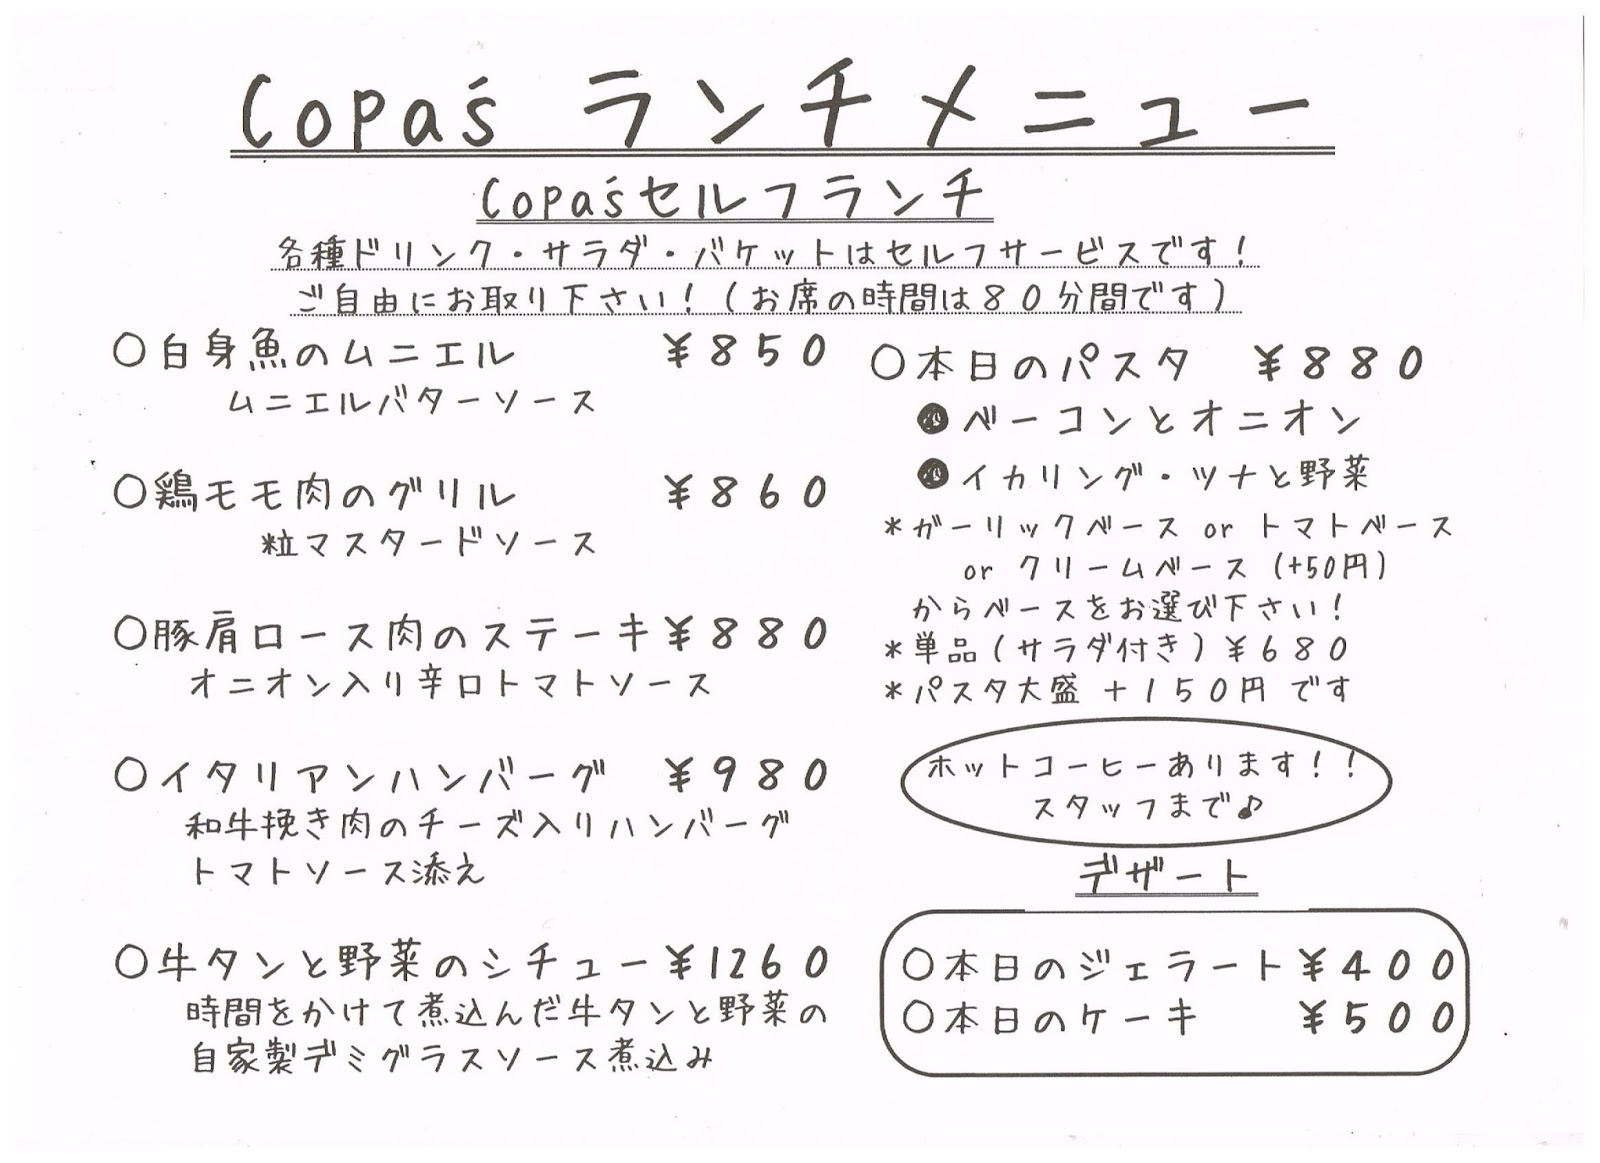 Copa's ランチメニュー
Copa'sセルフランチ
各種ドリンク・サラダ・バケットはセルフサービスです！
ご自由にお取り下さい！（お席の時間は８０分間です）
〇白身魚のムニエル ￥８５０
ムニエルバターソース
〇鶏モモ肉のグリル ￥８６０
粒マスタードソース
〇豚肩ロース肉のステーキ￥８８０
オニオン入り辛口トマトソース
〇イタリアンハンバーグ ￥９８０
和牛挽き肉のチーズ入りハンバーグ
トマトソース添え
〇牛タンと野菜のシチュー￥１２６０
時間をかけて煮込んだ牛タンと野菜の
自家製デミグラスソース煮込み
〇本日のパスタ ￥８８０
ベーコンとオニオン
イカリング・ツナと野菜
＊ガーリックベース or トマトベース
or クリームベース (+50円)
からベースをお選び下さい！
＊単品（サラダ付き）￥６８０
＊パスタ大盛 ＋１５０円 です
ホットコーヒーあります！！
スタッフまで♪
デザート
〇本日のジェラート￥４００
〇本日のケーキ ￥５００